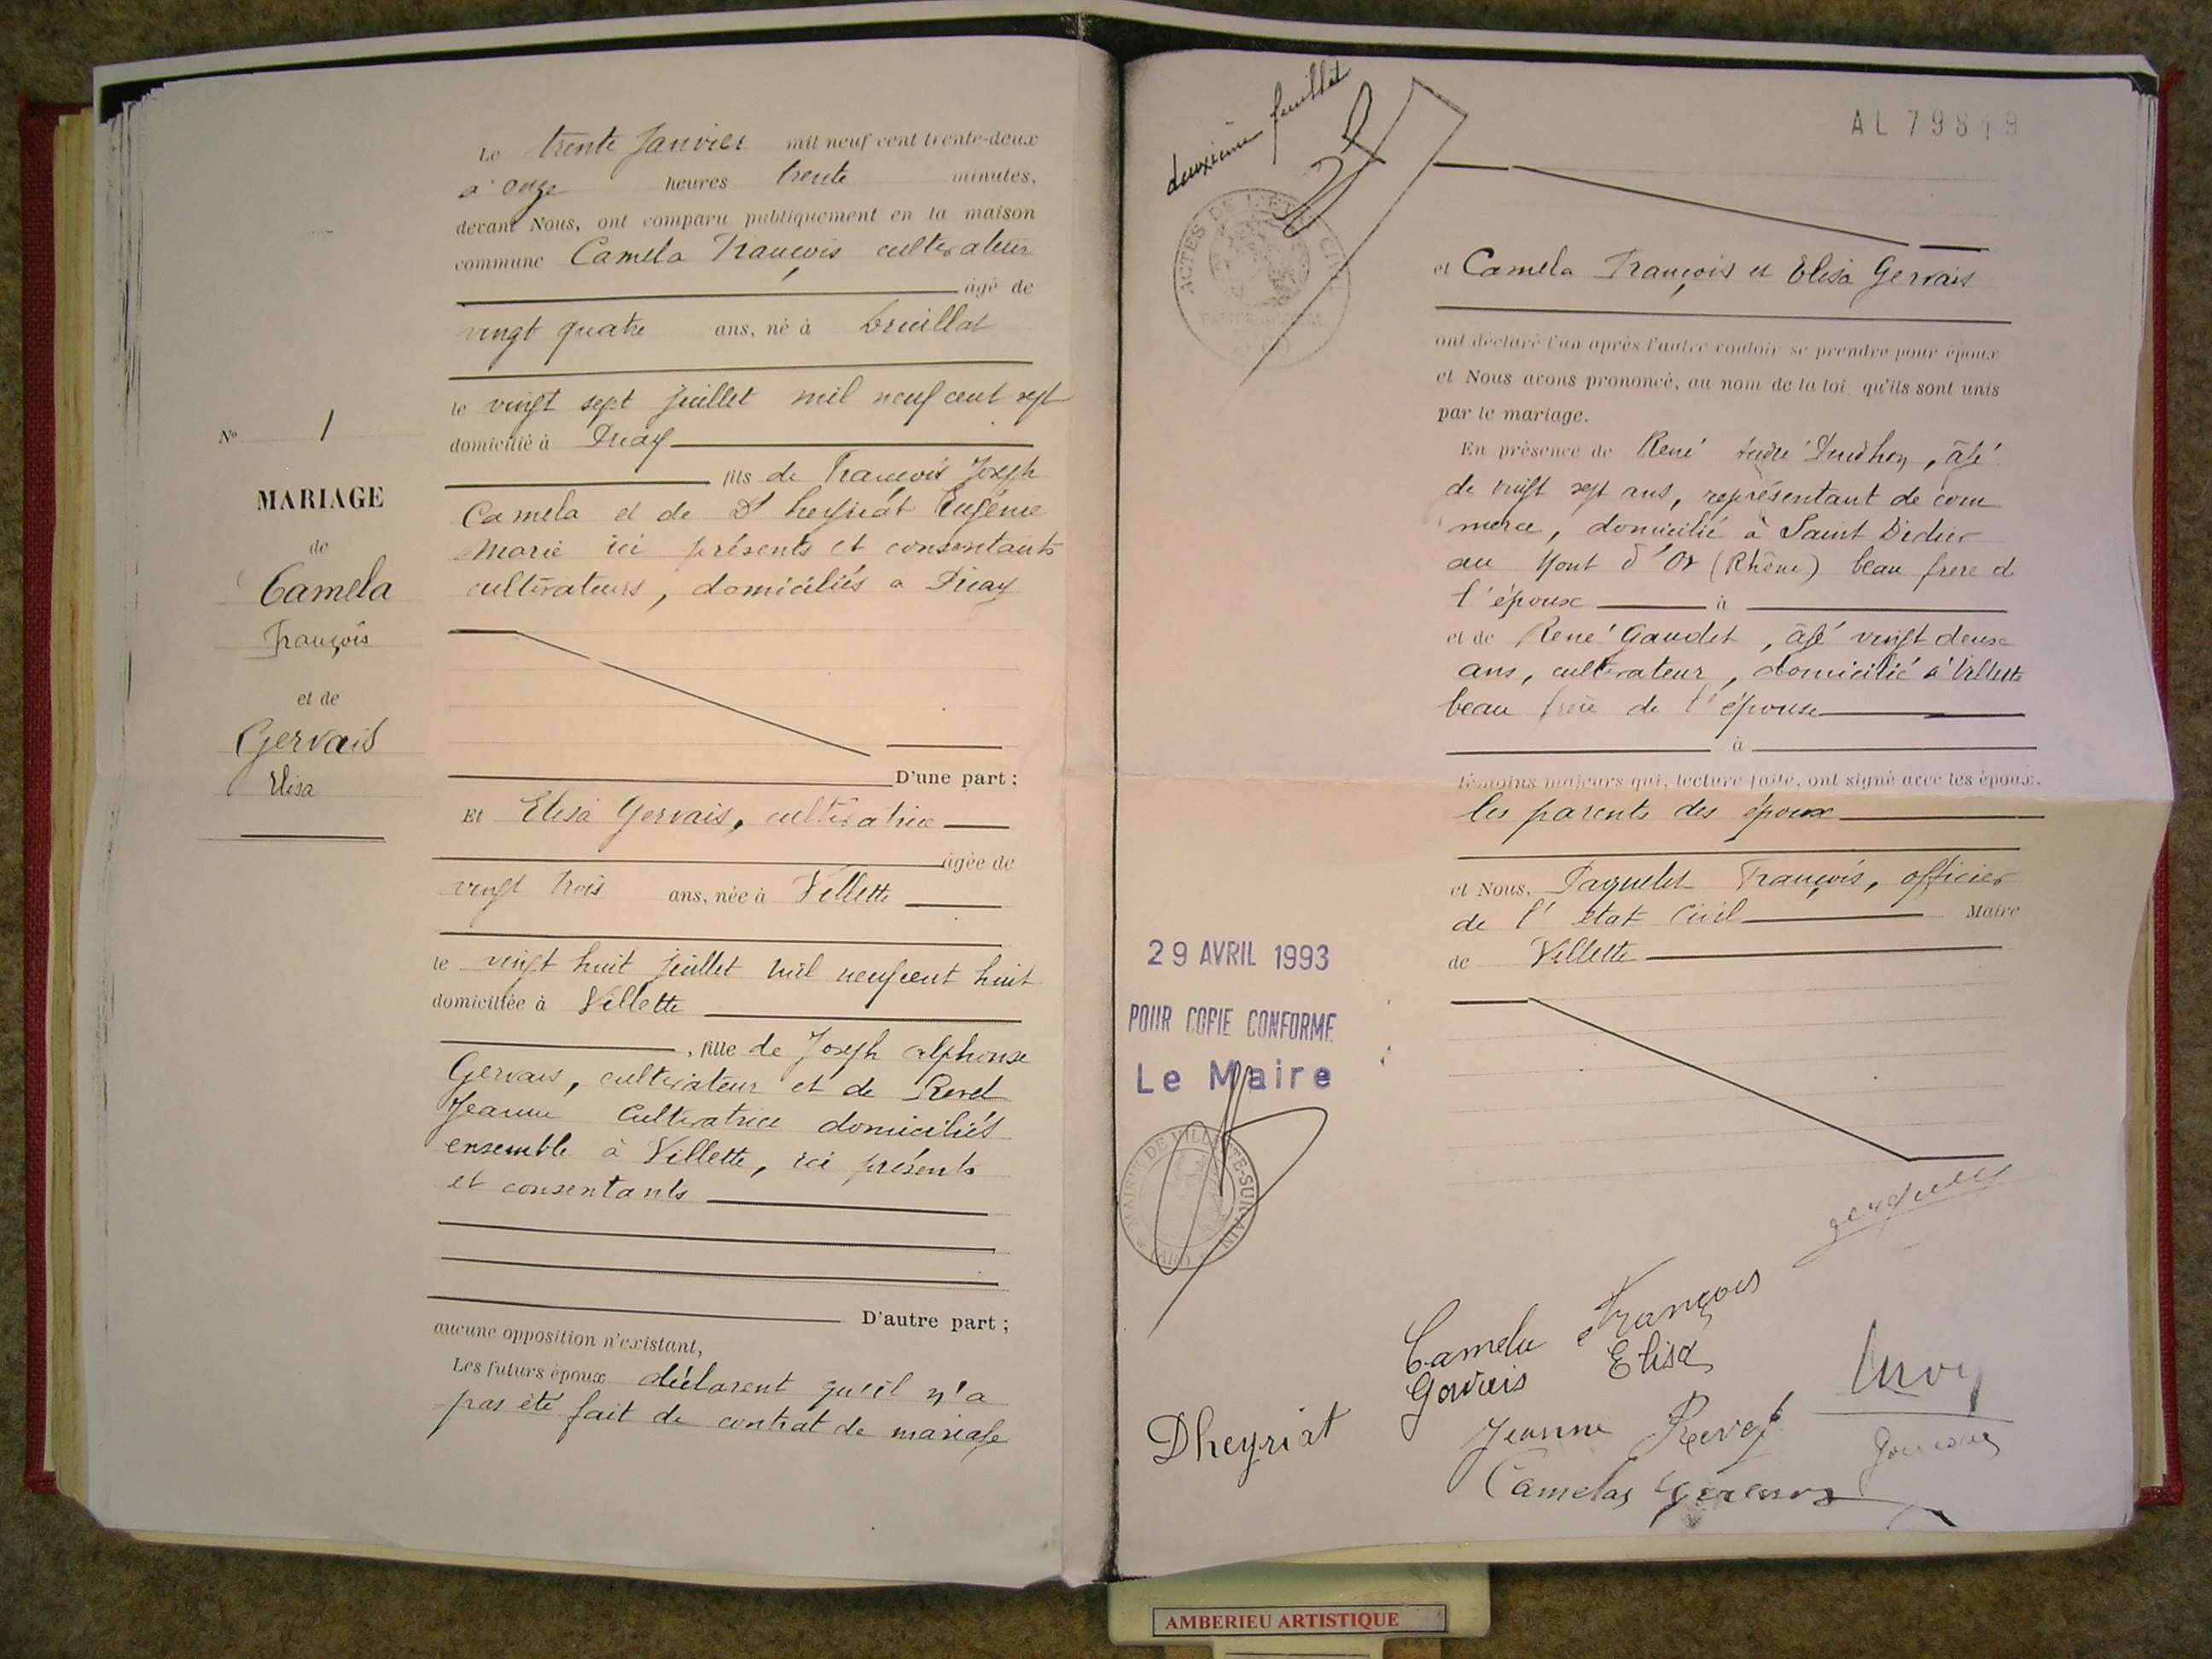 Le trente Janvier mil neuf cent trente-deux
à onze heures trente minutes,
devant Nous, ont comparu publiquement en la maison
commune Camela François cultivateur
âgé de
vingt quatre ans, né à Druillat
le vingt sept juillet mil neuf cent sept
domicilié à
fils de François Joseph
Camela et de Dheyriat Eugénie
Marie ici présents et consentants
cultivateurs, domiciliés a
D'une part ;
Et Elisa Gervais, cultivatrice
âgée de
vingt trois ans, née à Villette
le vingt huit juillet mil neuf cent huit
domiciliée à Villette
, fille de Joseph alphonse
Gervais, cultivateur et de Revel
Jeanne Cultivatrice domiciliés
ensemble à Villette, ici présents
et consentants
D'autre part ;
aucune opposition n'existant,
Les futurs époux déclarent qu'il n'a
pas été fait de contrat de mariage
No 1
MARIAGE
de
Camela
François
et de
Gervais
Elisa
deuxième feuillet
ACTES DE L'ÉTAT CIVIL
AL 79819
et Camela François et Elisa Gervais
ont déclaré l'un après l'autre vouloir se prendre pour époux
et Nous avons prononcé, au nom de la loi qu'ils sont unis
par le mariage.
En présence de René André, âgé
de vingt sept ans, représentant de com
merce, domicilié à Saint Didier
au Mont d'Or (Rhône) beau frere d
l'épouse à
et de René Gaudet, âgé vingt deux
ans, cultivateur, domicilié à Villette
beau frère de l'épouse
à
témoins majeurs qui, lecture faite, ont signé avec les époux.
les parents des époux
et Nous, Paquelet François, officier
de l'état Civil Maire
de Villette
29 AVRIL 1993
POUR COPIE CONFORME
Le Maire
MAIRIE DE VILLETTE-SUR-AIN (AIN)
Camela François
Gervais Elisa
Dheyriat
Jeanne Revel
Camelas
AMBERIEU ARTISTIQUE